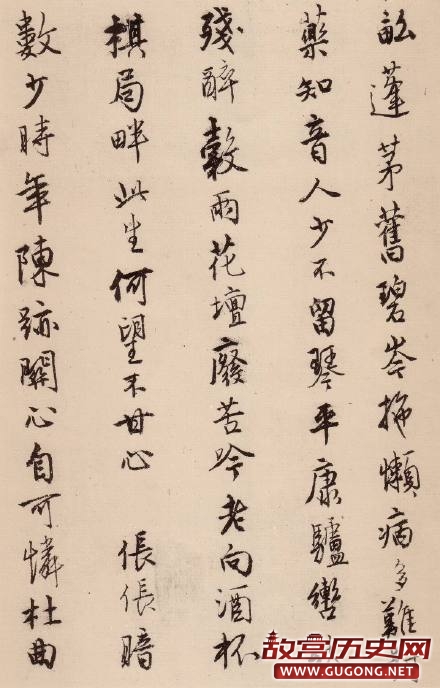 畝蓬茅舊碧岑懶病多難
藥知音人少不留琴平康驢轡
殘醉穀雨花壇廢苦吟老向酒杯
棋局畔此生何望不甘心 倀倀暗
數少時年陳跡關心自可憐杜曲
故宫历史网
WWW.GUGONG.NET